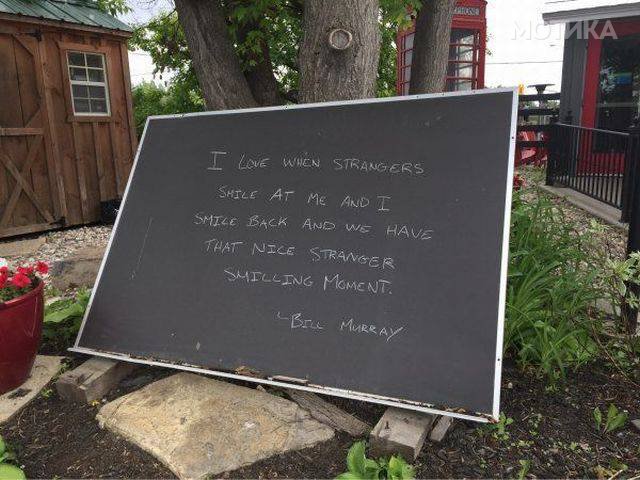 МОТИКА
PHONE
I LOVE WHEN STRANGERS
SMILE AT ME AND I
SMILE BACK AND WE HAVE
THAT NICE STRANGER
SMILLING MOMENT.
-BILL MURRAY